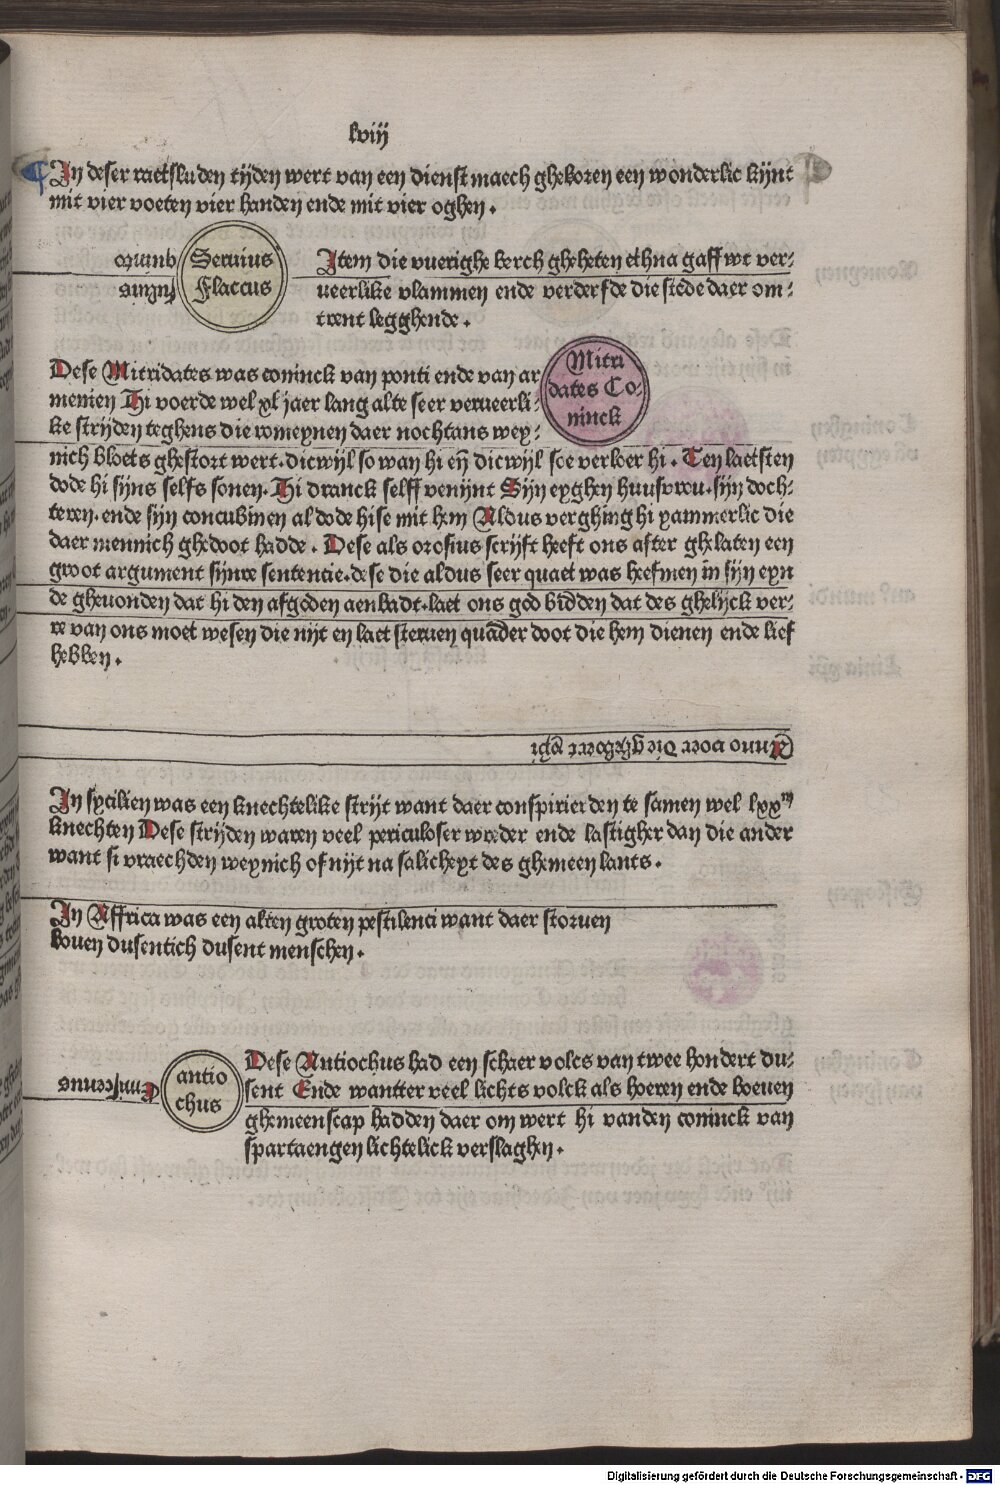 lviij
In deser raetsluden tijden wert van een dienst maech gheboren een wonderlic kijnt
mit vier voeten vier handen ende mit vier oghen.
quinto
fuluius
Seruius
Flaccus
Item die vuerighe berch gheheten ethna gaff wt ver-
ueerlike vlammen ende verderfde die stede daer om-
trent legghende.
Mitri
dates Co-
ninck
Dese Mitridates was coninck van ponti ende van ar
menien Hi voerde wel xl jaer lang alte seer verueerli-
ke strijden teghens die romeynen daer nochtans wey-
nich bloets ghestort wert. dicwijl so wan hi eñ dicwijl soe verloer hi. Ten laetsten
dode hi sijns selfs sonen. Hi dranck selff venijnt Sijn eyghen huusvrou. sijn doch-
teren. ende sijn concubinen al dode hise mit hem Aldus verghing hi yammerlic die
daer mennich ghedoot hadde. Dese als orosius scrijft heeft ons after ghelaten een
groot argument sijnre sentencie. dese die aldus seer quaet was heefmen in sijn eyn
de gheuonden dat hi den afgoden aenbadt. laet ons god bidden dat des ghelijck ver-
re van ons moet wesen die nijt en laet steruen quader doot die hem dienen ende lief
hebben.
Anno voer die gheboert xp̄i
In sycilien was een knechtelike strijt want daer conspirierden te samen wel lxxm
knechten Dese strijden waren veel periculoser wreder ende lastigher dan die ander
want si vraechden weynich of nijt na salicheyt des ghemeen lants.
In Affrica was een alten groten pestilenci want daer storuen
bouen dusentich dusent menschen.
Emiscenus
antio
chus
Dese Antiochus had een schaer volcs van twee hondert du-
sent Ende wantter veel lichts volck als hoeren ende boeuen
ghemeenscap hadden daer om wert hi vanden coninck van
spartaengen lichtelick verslaghen.
Digitalisierung gefördert durch die Deutsche Forschungsgemeinschaft - DFG